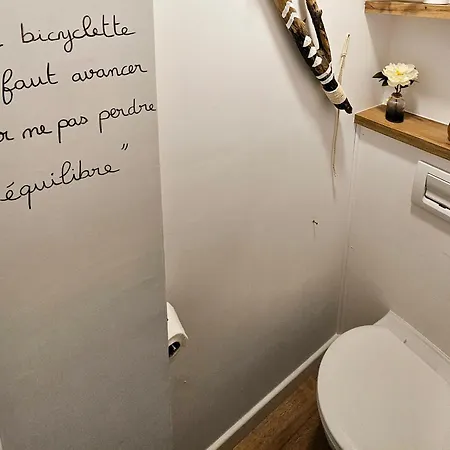 bicyclette
faut avancer
ne pas perdre
équilibre"